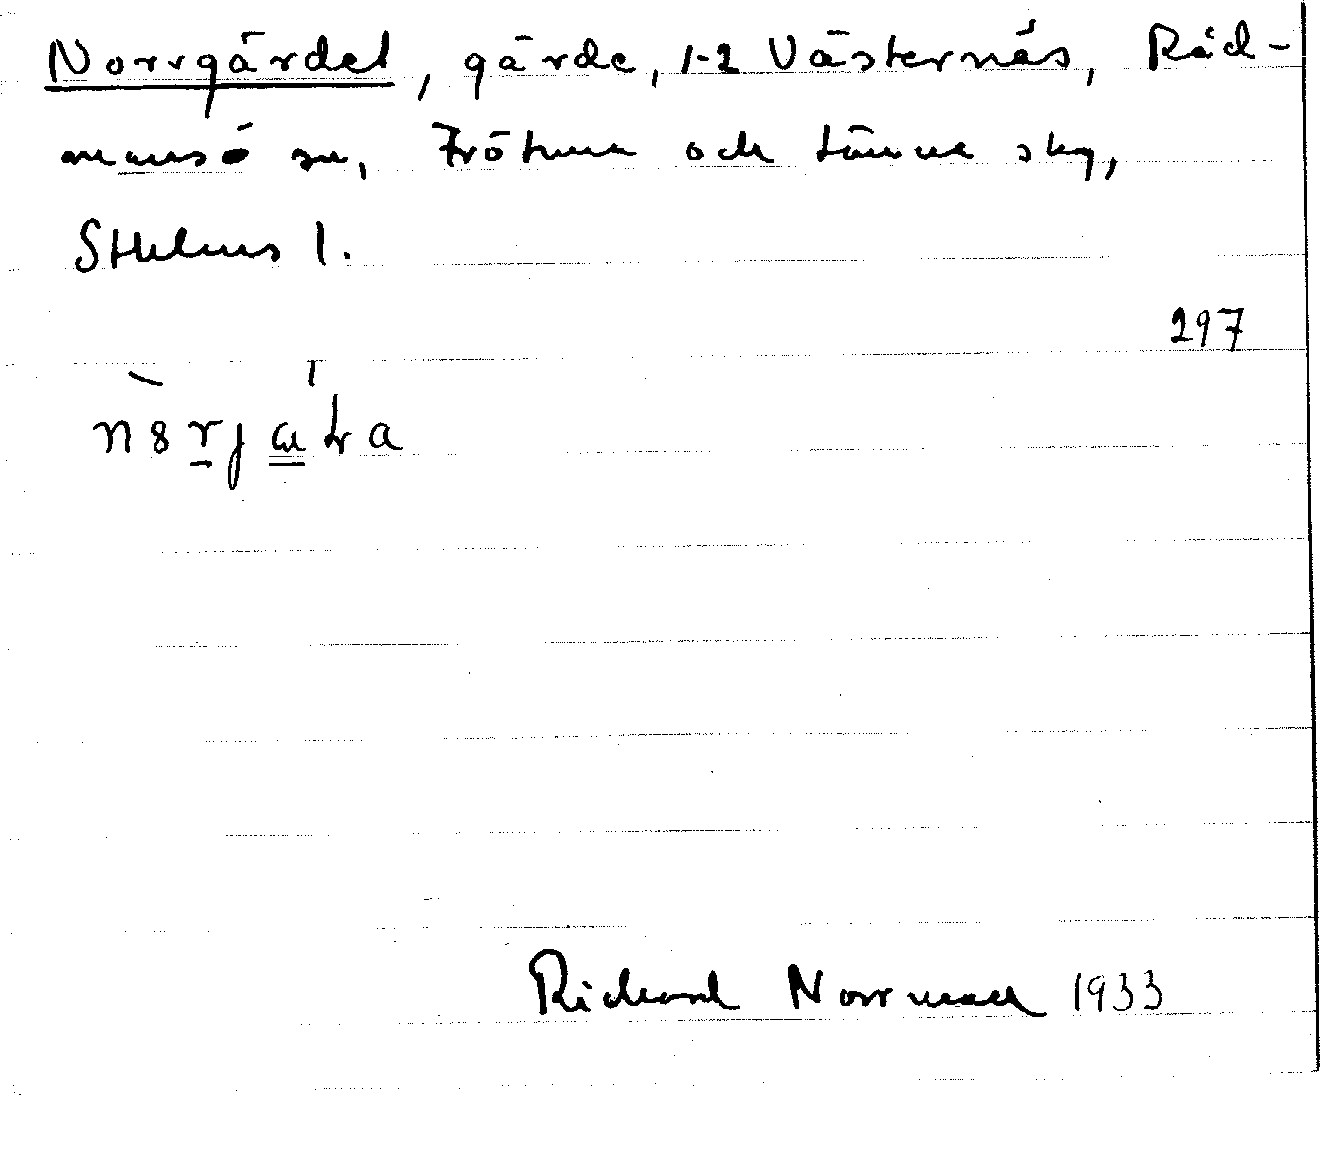 Norrgärdet, gärde, 1-2 Västernäs, Råd-
mansö sn, Frötuna och Länna sky,
Sthlms l.
297
Richard Norrman 1933